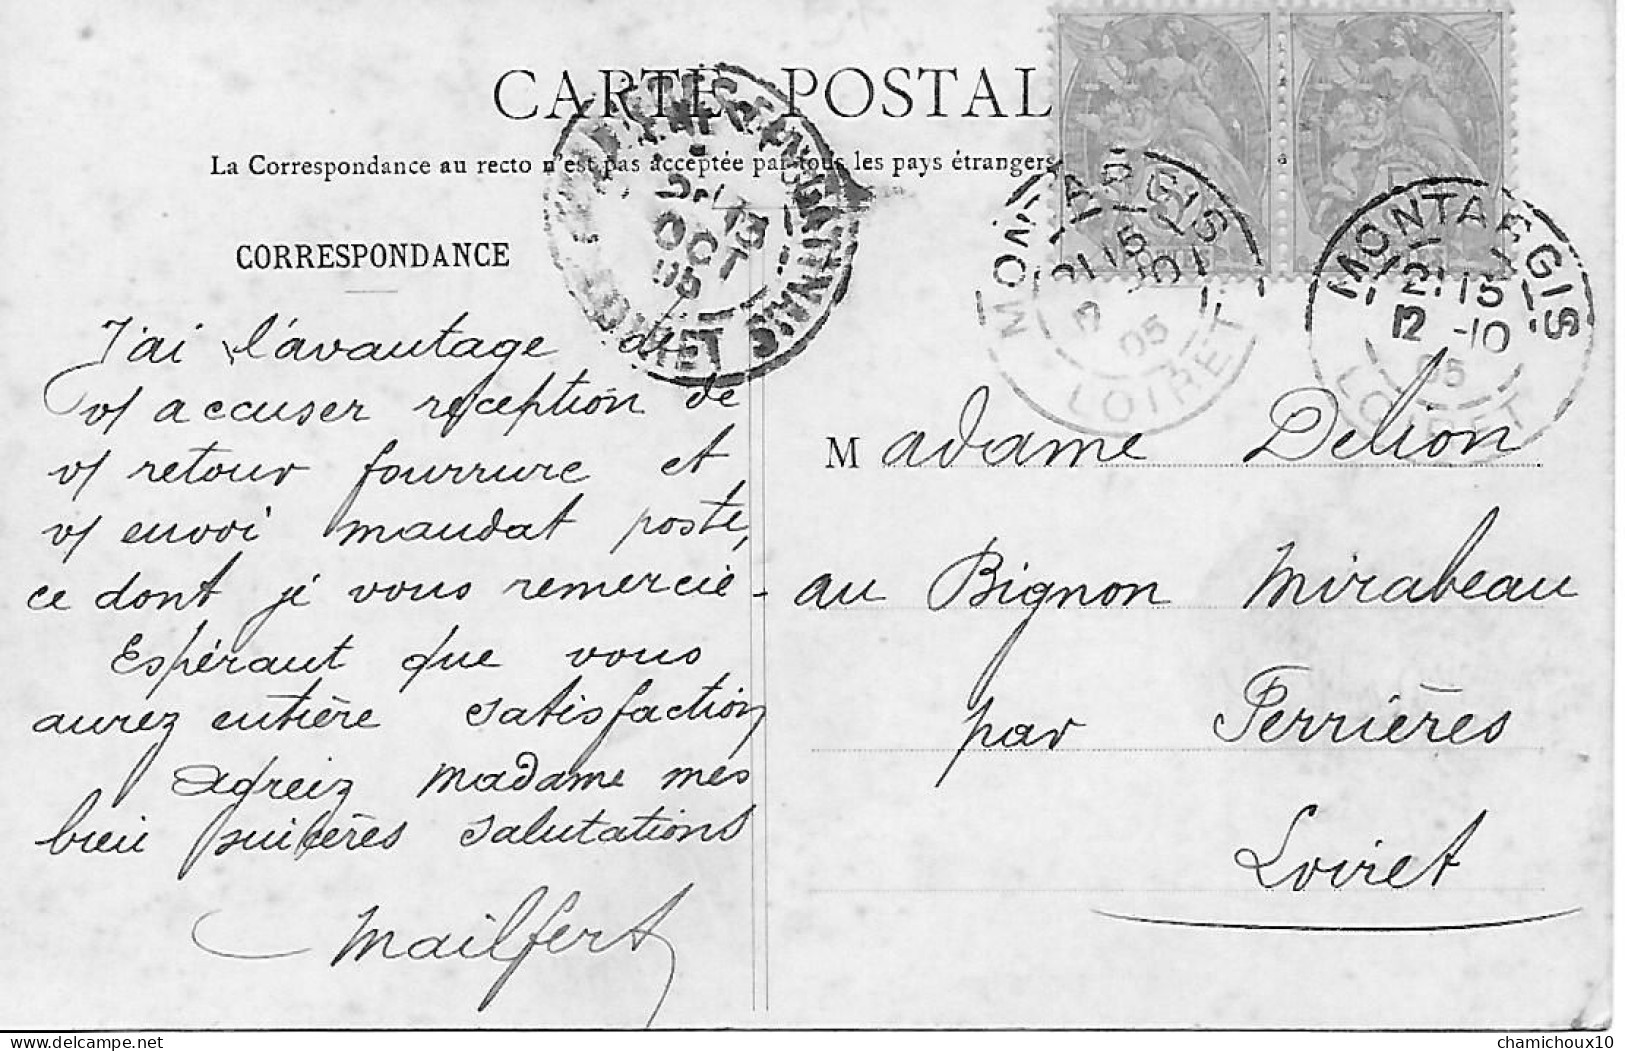 CARTE POSTAL
La Correspondance au recto n'est pas acceptée par tous les pays étrangers
CORRESPONDANCE
J'ai l'avantage de
v/ accuser reception de
v/ retour fourrure et
v/ envoi mandat poste,
ce dont je vous remercie -
Espérant que vous
aurez entière satisfaction
Agreez Madame mes
bien sincères salutations
Mailfert
MONTARGIS
21 15
12 -10
05
LOIRET
MONTARGIS
21 15
12 -10
05
LOIRET
13
OCT
05
LOIRET
Madame Delion
au Bignon Mirabeau
par Ferrières
Loiret
www.delcampe.net
chamichoux10